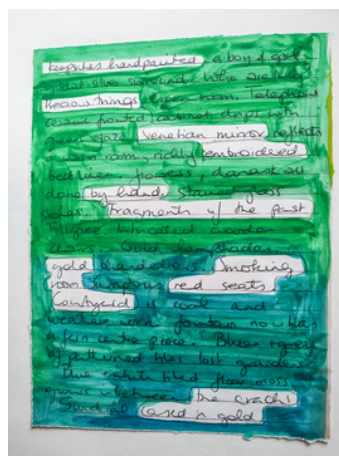 keepsakes handpainted a boy & girl
who
Precious things Green room. Telephone
with
green glaze venetian mirror reflects
room, richly embroidered
bed linen flowers, damask all
done by hand. Stained glass
fragments of the past
wooden
Gold lampshades
gold chandeliers. Smoking
room sumptuous red seats.
Courtyard is cool and
weather worn fountain now has
a fern centre piece. Blues + greys
of patterned tiles lost grandeur
blue + white tiled floor moss
grows inbetween the cracks
Sundial cased in gold